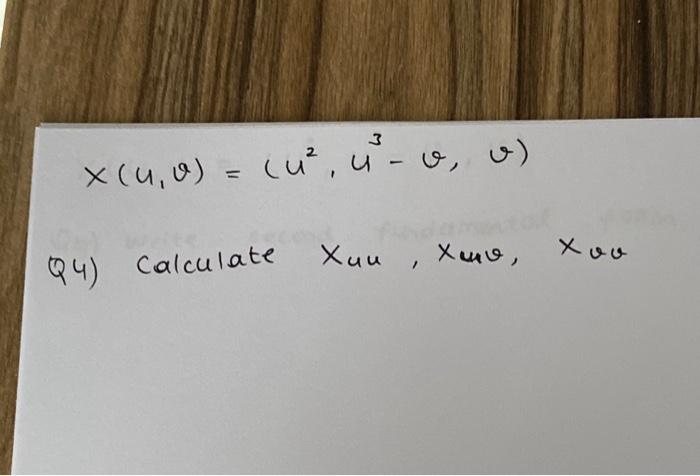 X(u,v) = (u², u³ - v, v)
Q4) Calculate Xuu , Xuv, Xvv